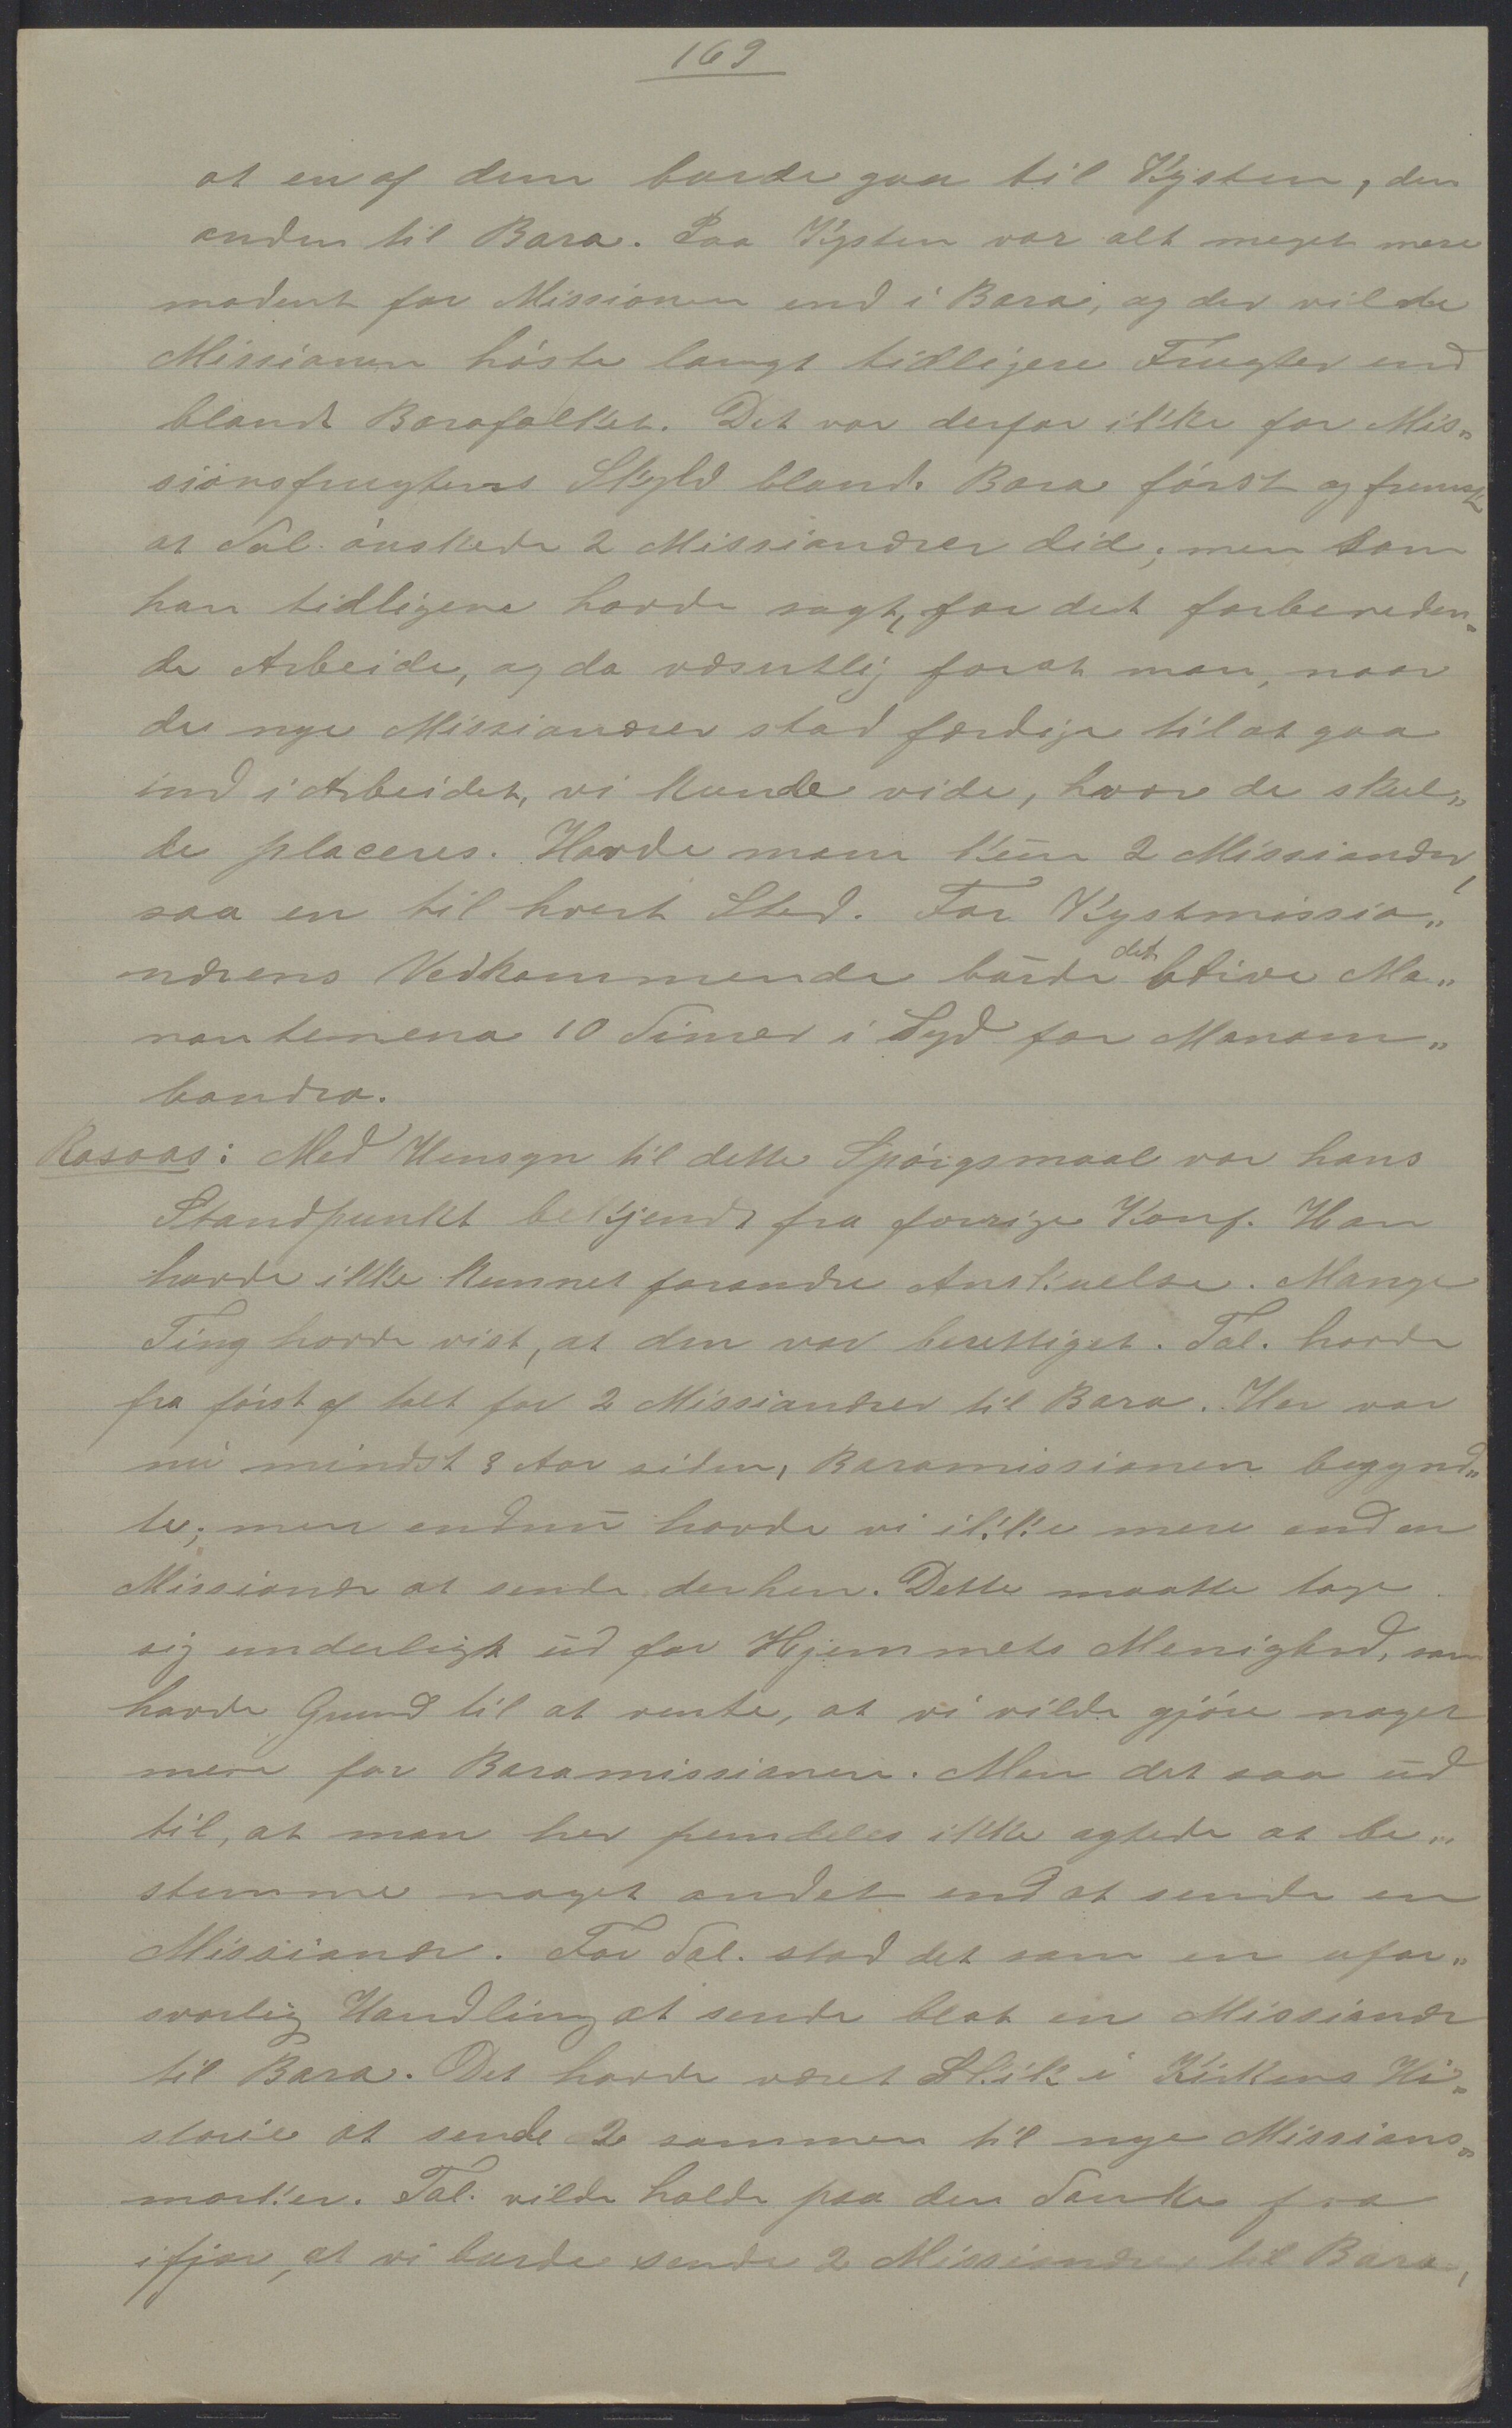 169
at en af dem burde gaa til Kysten, den
anden til Bara. Paa Kysten var alt meget mere
modent for Missionen end i Bara, og der vilde
Missionen höste langt tidligere Frugter end
blandt Barafolket. Det var derfor ikke for Mis„
sionsfrugtens Skyld blandt Bara först og fremst
at Tal. önskede 2 Missionærer did; men som
han tidligere havde sagt, for det forbereden„
de Arbeide, og da væsentlig forat man, naar
de nye Missionærer stod færdige til at gaa
ind i Arbeidet, vi kunde vide, hvor de skul„
de placeres. Havde man kūn 2 Missionærer,
saa en til hvert Sted. For Kystmissio„
nærens Vedkommende bürde det blive Ma„
nantenena 10 Timer i Syd for Manam„
bondro.
Rosaas: Med Hensyn til dette Spörgsmaal var hans
Standpunkt bekjendt fra forrige Konf. Han
havde ikke kunnet forandre Anskuelse. Mange
Ting havde vist, at den var berettiget. Tal. havde
fra först af talt for 2 Missionærer til Bara. Her var
nū mindst 3 Aar siden, Baramissionen begynd„
te; men endnū havde vi ikke mere end en
Missionær at sende derhen. Dette maatte tage
sig underligt ūd for Hjemmets Menighed, som
havde Grund til at vente, at vi vilde gjöre noget
mere for Baramissionen. Men det saa ūd
til, at man her fremdeles ikke agtede at be„
stemme noget andet end at sende en
Missionær. For Tal. stod det som en ufor„
svarlig Handling at sende blot en Missionær
til Bara. Det havde været Skik i Kirkens Hi„
storie at sende 2 sammen til nye Missions„
marker. Tal. vilde holde paa den Tanke fra
ifjor, at vi burde sende 2 Missionærer til Bara,